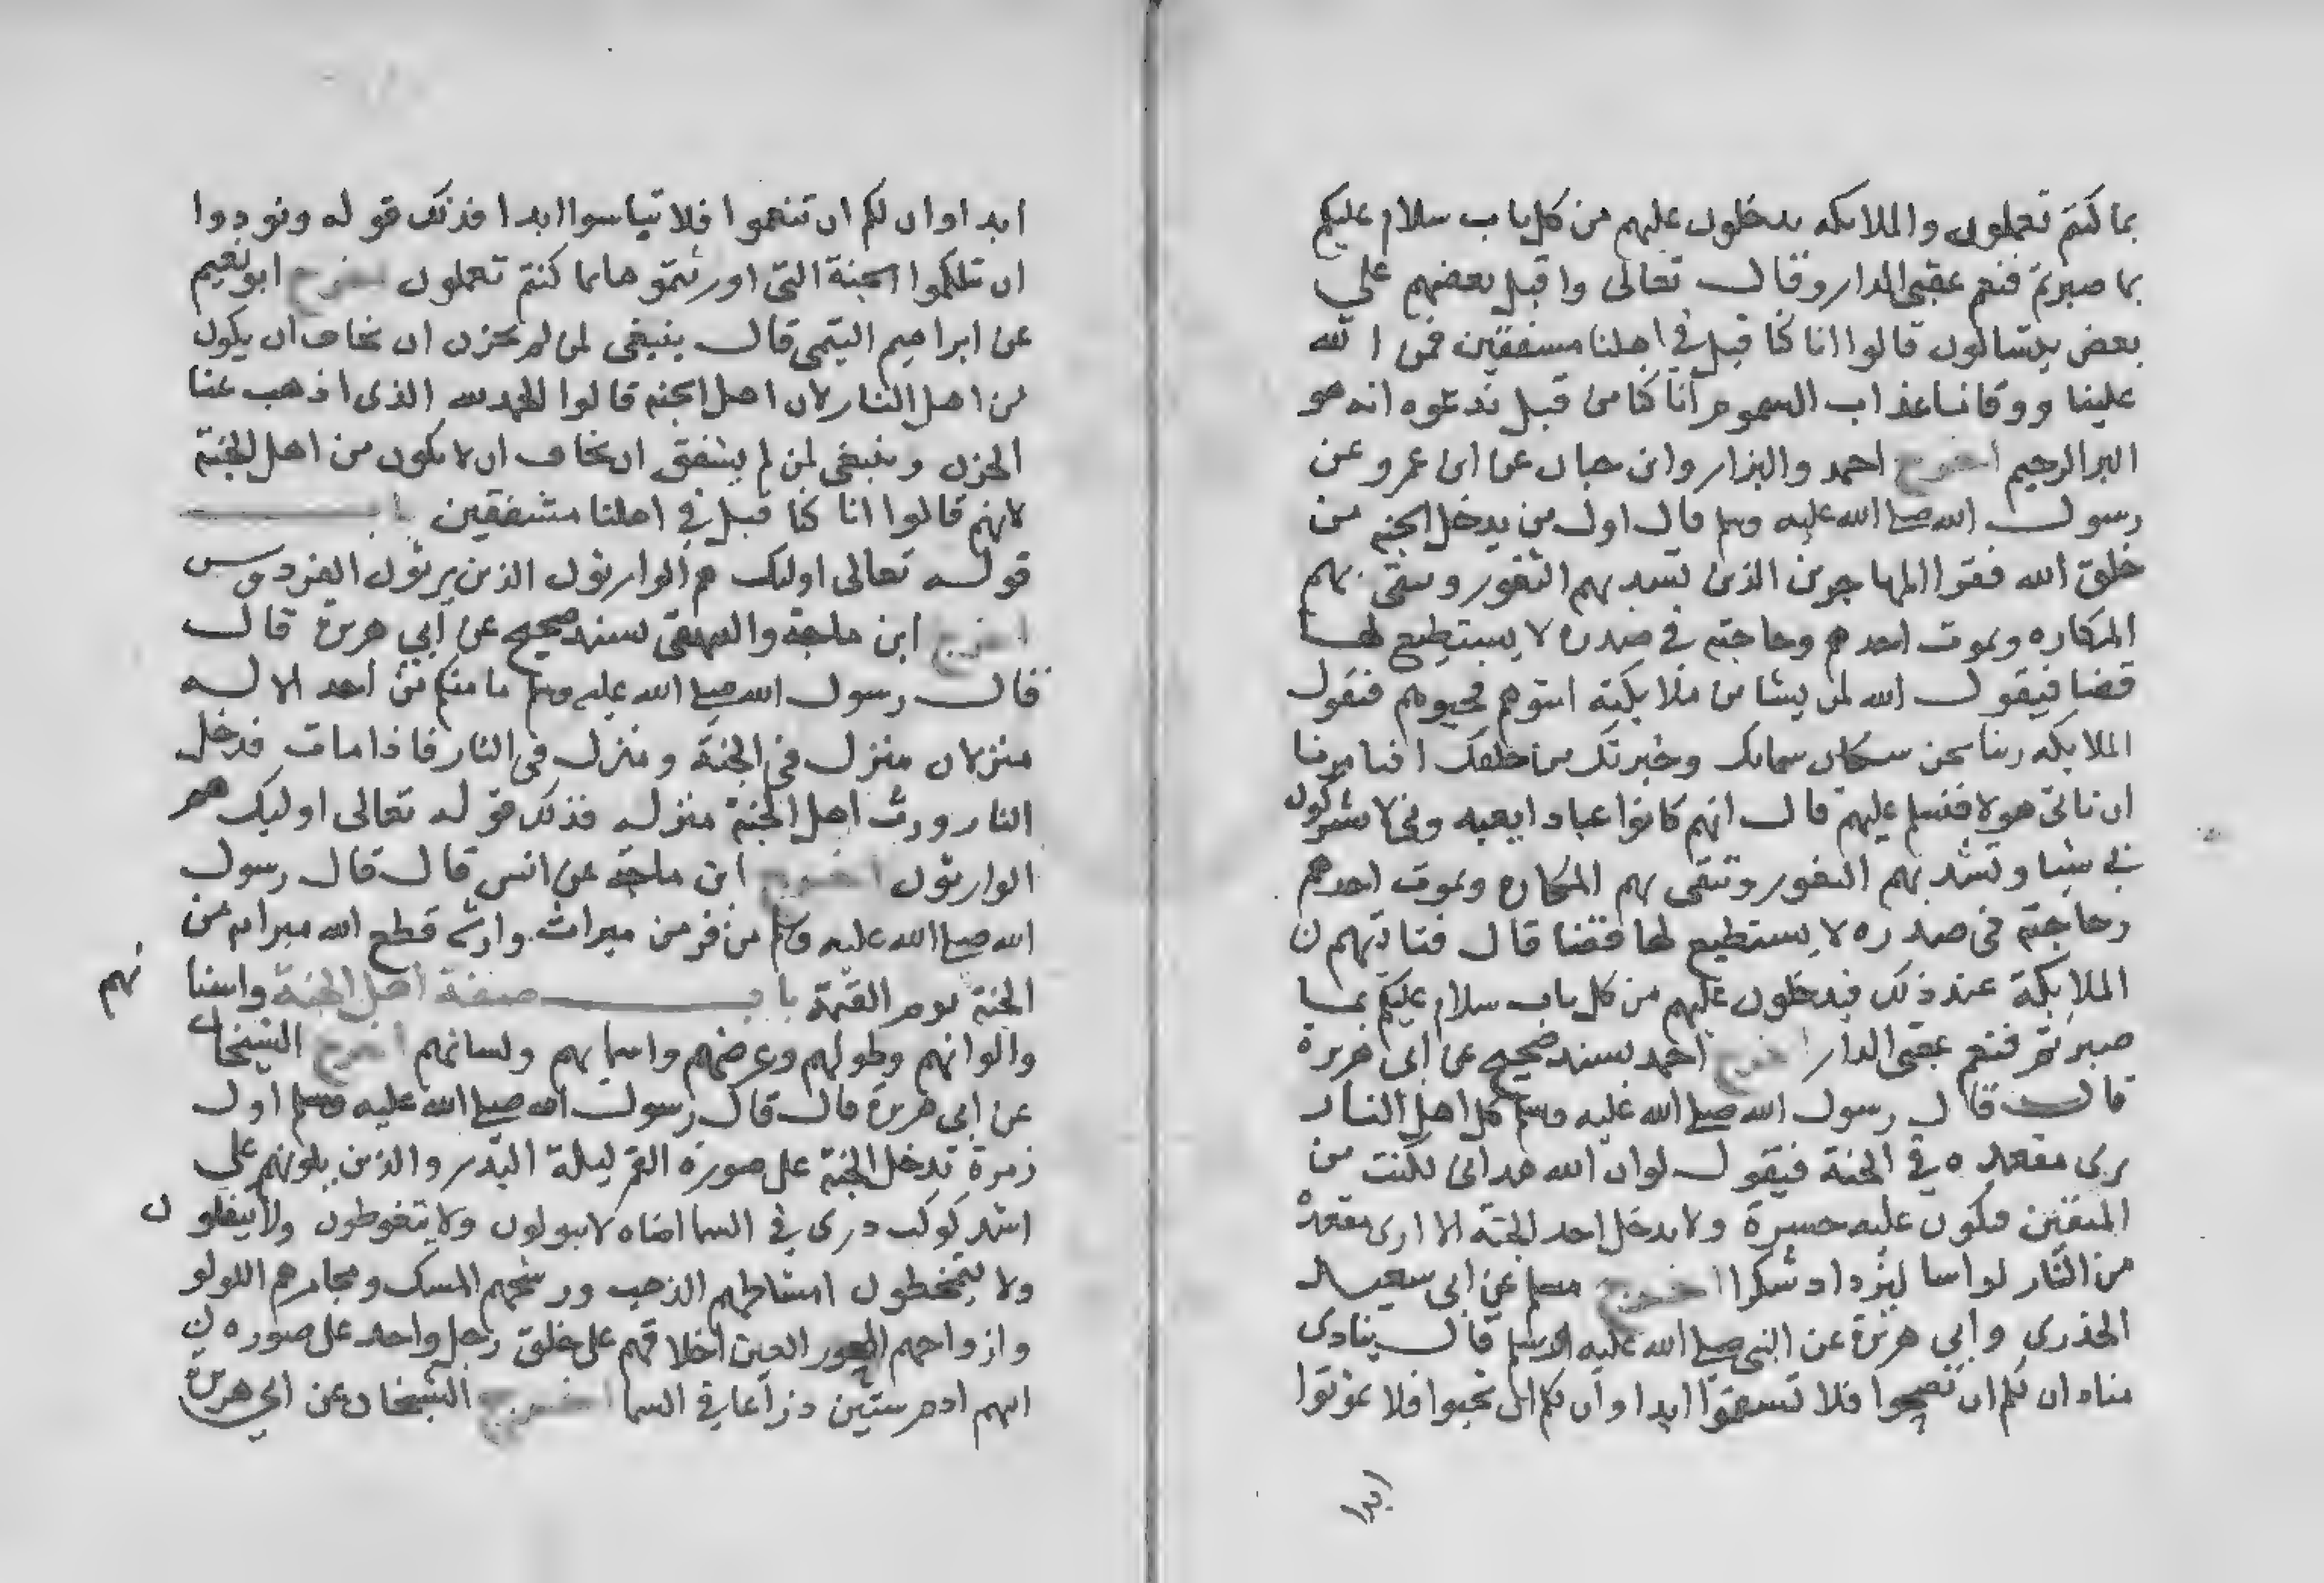 بما كنتم تعملون والملايكه يدخلون عليهم من كل باب سلام عليكم
بما صبرتم فنعم عقبى الدار وقال تعالى واقبل بعضهم على
بعض يتسالون قالوا انا كنا قبل في اهلنا مشفقين فمن الله
علينا ووقانا عذاب السموم انا كنا من قبل ندعوه انه هو
البر الرحيم اخرج احمد والبزار وابن حبان عن ابن عمرو عن
رسول الله صلى الله عليه وسلم قال اول من يدخل الجنه من
خلق الله فقرا المهاجرين الذين تسد بهم الثغور وتتقى بهم
المكاره ويموت احدهم وحاجته في صدره لا يستطيع لها
قضا فيقول الله لمن يشا من ملايكته ايتوهم فحيوهم فتقول
الملايكه ربنا نحن سكان سمائك وخيرتك من خلقك افتامرنا
ان ناتى هولا فنسلم عليهم قال انهم كانوا عبادا يعبد وني لا يشركون
بي شيا وتسد بهم الثغور وتتقى بهم المكاره ويموت احدهم
وحاجته في صدره لا يستطيع لها قضا قال فتاتيهم
الملايكة عند ذلك فيدخلون عليهم من كل باب سلام عليكم بما
صبرتم فنعم عقبى الدار اخرج احمد بسند صحيح عن ابى هريرة
قال قال رسول الله صلى الله عليه وسلم كل اهل النار
يرى مقعده في الجنة فيقول لو ان الله هدانى لكنت من
المتقين فيكون عليه حسرة ولا يدخل احد الجنة الا ارى مقعده
من النار لو اسا ليزداد شكرا اخرج مسلم عن ابى سعيد
الخدري وابي هريرة عن النبي صلى الله عليه وسلم قال ينادى
مناد ان لكم ان تصحوا فلا تسقموا ابدا وان لكم ان تحيوا فلا تموتوا
ابدا
ابدا وان لكم ان تنعموا فلا تياسوا ابدا فذلك قوله ونودوا
ان تلكموا الجنة التى اورثتموها بما كنتم تعملون اخرج ابو نعيم
عن ابراهيم التيمى قال ينبغى لمن لم يحزن ان يخاف ان يكون
من اهل النار لان اهل الجنه قالوا الحمد لله الذى اذهب عنا
الحزن وينبغى لمن لم يشفق ان يخاف ان لا يكون من اهل الجنة
لانهم قالوا انا كنا قبل في اهلنا مشفقين باب
قوله تعالى اوليك هم الوارثون الذين يرثون الفردوس
اخرج ابن ماجة والبيهقى بسند صحيح عن ابي هريرة قال
قال رسول الله صلى الله عليه وسلم ما منكم من احد الا له
منزلان منزل في الجنة ومنزل في النار فاذا مات فدخل
النار ورث اهل الجنة منزله فذلك قوله تعالى اوليك هم
الوارثون اخرج ابن ماجة عن انس قال قال رسول
الله صلى الله عليه وسلم من فر من ميراث وارثه قطع الله ميراثه من
الجنة يوم القيمة باب صفة اهل الجنة واسنا
نهم
والوانهم وطولهم وعرضهم واسمايهم ولسانهم اخرج الشيخان
عن ابى هريرة قال قال رسول الله صلى الله عليه وسلم اول
زمرة تدخل الجنة على صورة القمر ليلة البدر والذين يلونهم على
اشد كوكب درى في السما اضاه لا يبولون ولا يتغوطون ولا يتفلون
ولا يتمخطون امشاطهم الذهب ورشحهم المسك ومجامرهم اللولو
وازواجهم الحور العين اخلاقهم على خلق رجل واحد على صوره
ابيهم ادم ستين ذراعا في السما اخرج الشيخان عن ابي هريرة